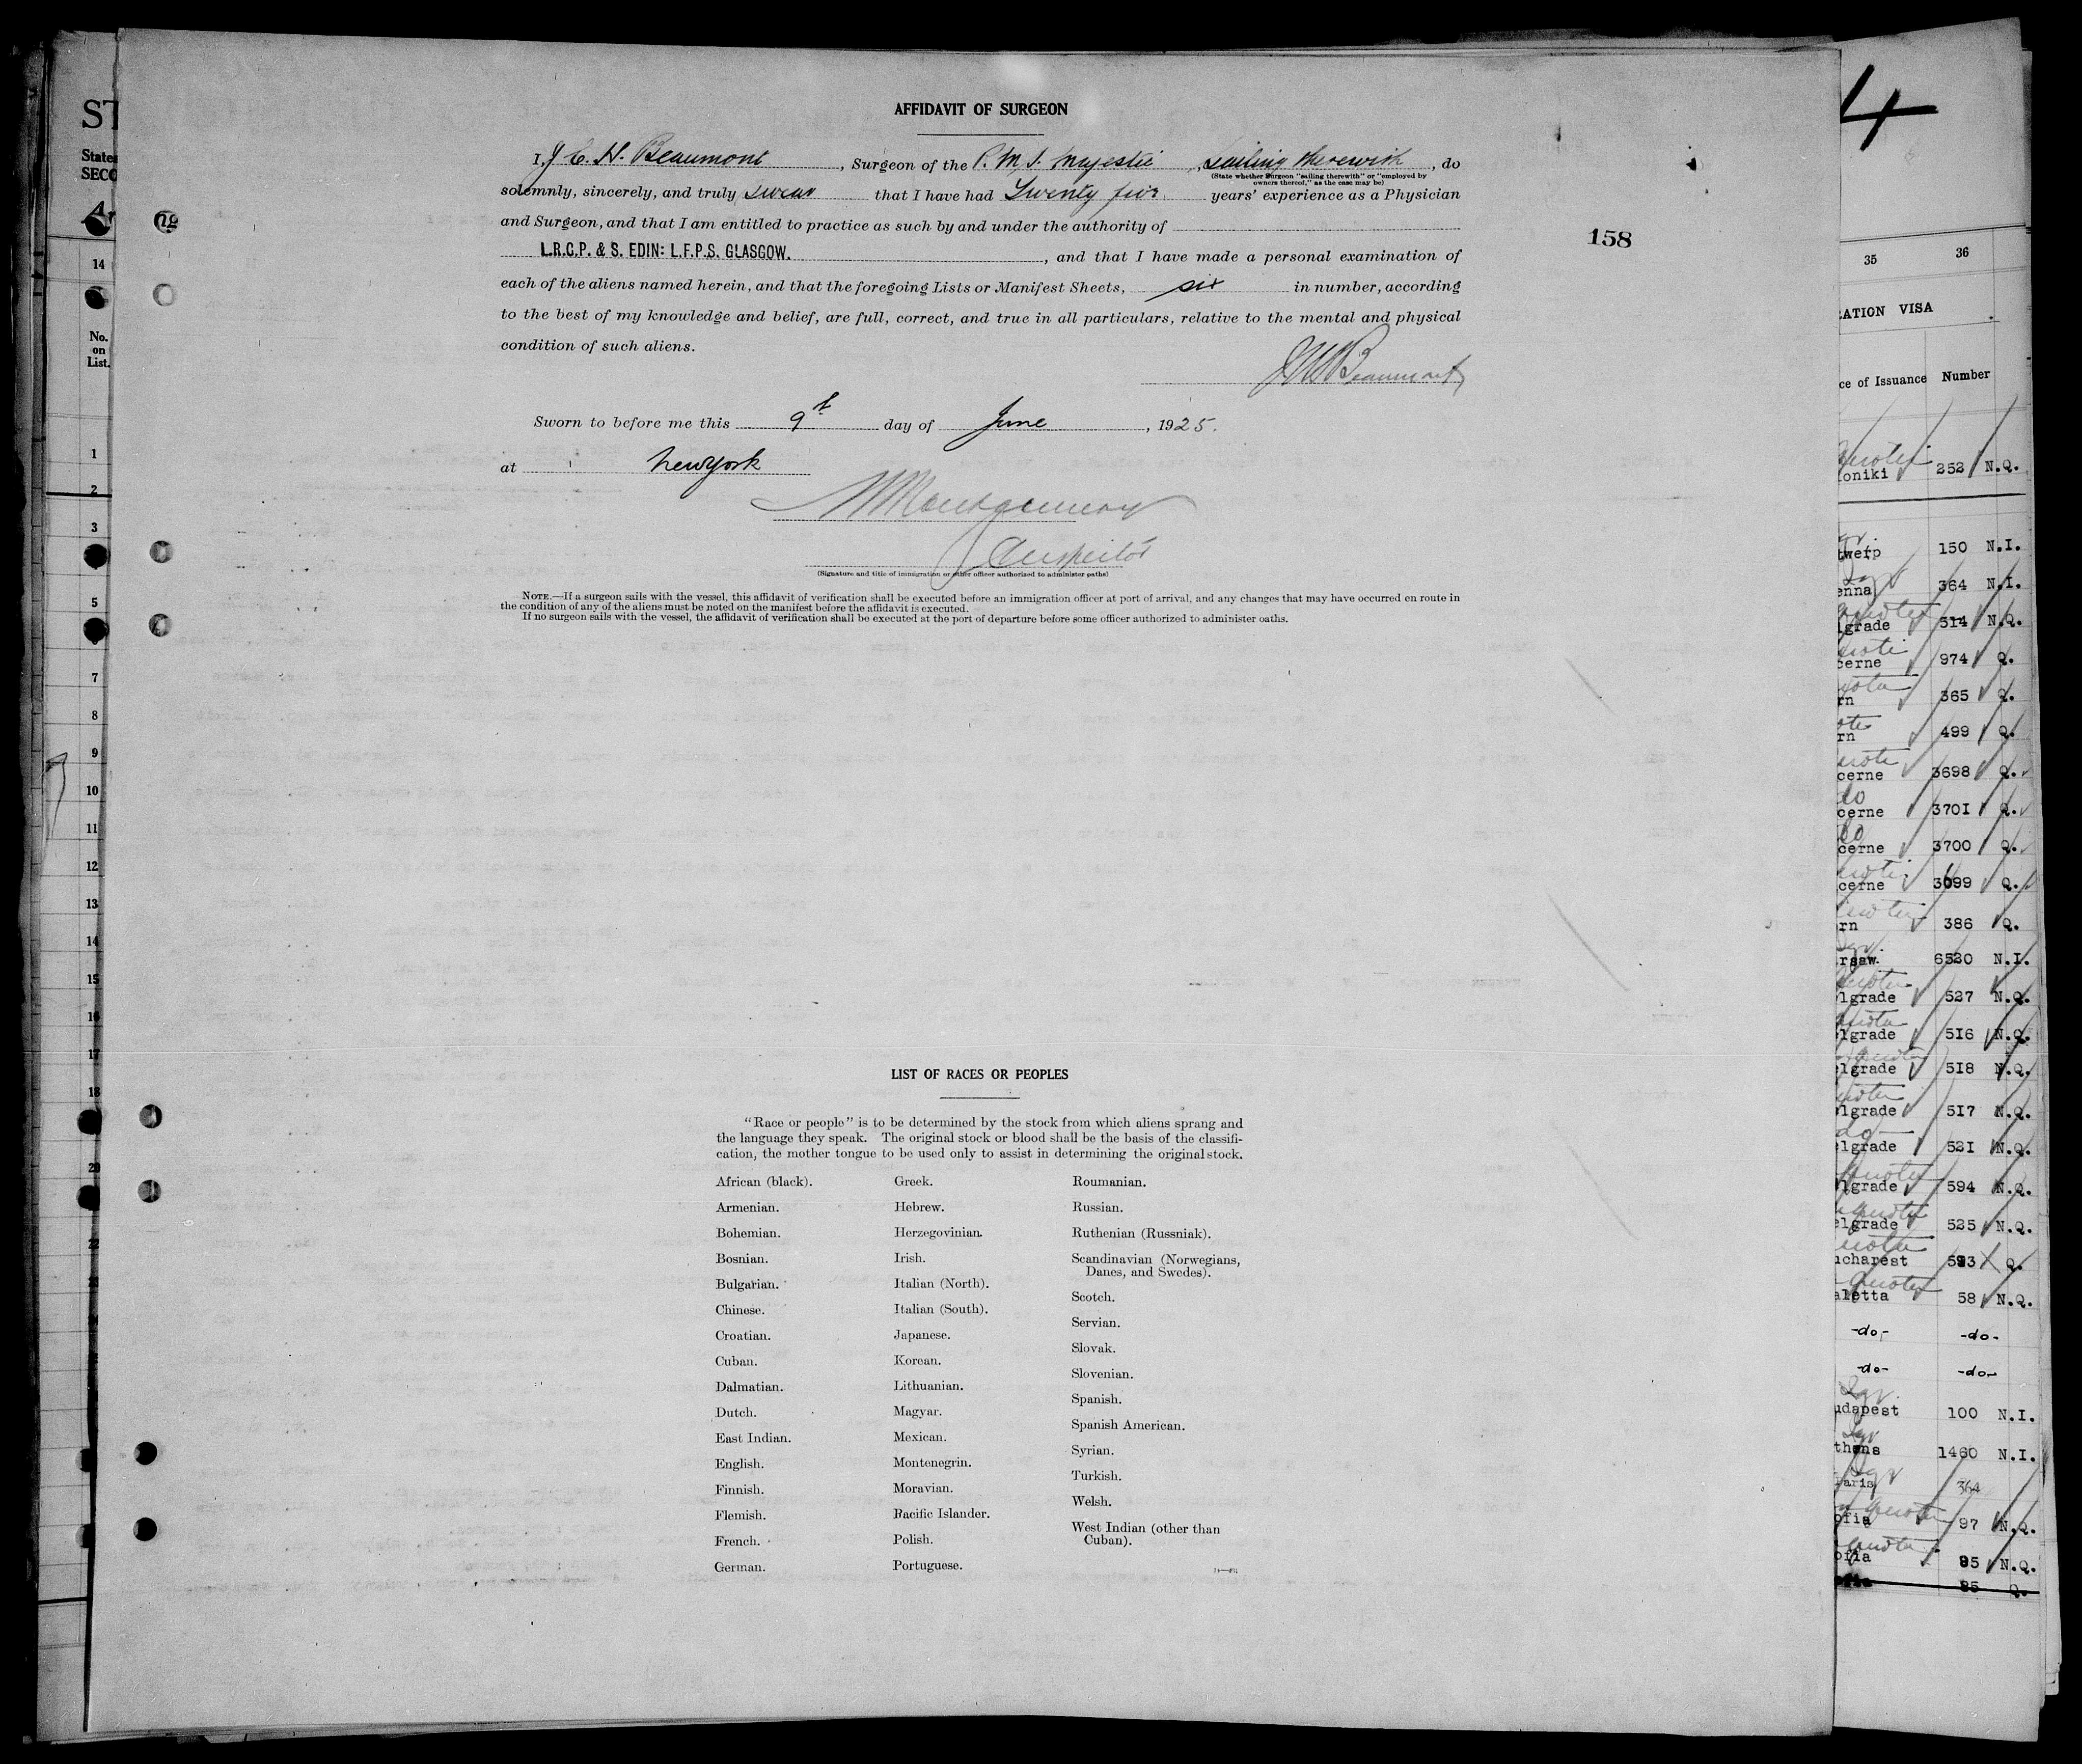 AFFIDAVIT OF SURGEON
I, J C. H. Beaumont, Surgeon of the R. M. S. Majestic, sailing therewith, do
(State whether Surgeon "sailing therewith" or "employed by
owners thereof," as the case may be)
solemnly, sincerely, and truly swear that I have had Twenty five years' experience as a Physician
and Surgeon, and that I am entitled to practice as such by and under the authority of
L.R.C.P. & S. EDIN: L.F.P.S. GLASGOW., and that I have made a personal examination of
each of the aliens named herein, and that the foregoing Lists or Manifest Sheets, six in number, according
to the best of my knowledge and belief, are full, correct, and true in all particulars, relative to the mental and physical
condition of such aliens.
Beaumont
Sworn to before me this 9th day of June, 1925.
at New York
Montgomery
Inspector
(Signature and title of immigration or other officer authorized to administer oaths)
NOTE.—If a surgeon sails with the vessel, this affidavit of verification shall be executed before an immigration officer at port of arrival, and any changes that may have occurred en route in
the condition of any of the aliens must be noted on the manifest before the affidavit is executed.
If no surgeon sails with the vessel, the affidavit of verification shall be executed at the port of departure before some officer authorized to administer oaths.
158
LIST OF RACES OR PEOPLES
"Race or people" is to be determined by the stock from which aliens sprang and
the language they speak. The original stock or blood shall be the basis of the classifi-
cation, the mother tongue to be used only to assist in determining the original stock.
African (black).
Armenian.
Bohemian.
Bosnian.
Bulgarian.
Chinese.
Croatian.
Cuban.
Dalmatian.
Dutch.
East Indian.
English.
Finnish.
Flemish.
French.
German.
Greek.
Hebrew.
Herzegovinian.
Irish.
Italian (North).
Italian (South).
Japanese.
Korean.
Lithuanian.
Magyar.
Mexican.
Montenegrin.
Moravian.
Pacific Islander.
Polish.
Portuguese.
Roumanian.
Russian.
Ruthenian (Russniak).
Scandinavian (Norwegians,
Danes, and Swedes).
Scotch.
Servian.
Slovak.
Slovenian.
Spanish.
Spanish American.
Syrian.
Turkish.
Welsh.
West Indian (other than
Cuban).
ST
State
SECO
14
No.
on
List.
1
2
3
5
7
8
9
10
11
12
13
14
15
16
17
18
20
22
4
35 36
ATION VISA
ce of Issuance Number
oniki 252 N.Q.
twerp 150 N.I.
enna 364 N.I.
lgrade 514 N.Q.
cerne 974 Q.
rn 365 Q.
rn 499 Q.
cerne 3698 Q.
do
cerne 3701 Q.
do
cerne 3700 Q.
cerne Q.
rn 386 Q.
rsaw. 6530 N.I.
lgrade 527 N.Q.
lgrade 516 N.Q.
lgrade 518 N.Q.
lgrade 517 N.Q.
do
lgrade 521 N.Q.
lgrade 594 N.Q.
elgrade 525 N.Q.
ucharest Q.
aletta 58 N.Q.
-do- -do-
-do- -do-
udapest 100 N.I.
thens 1460 N.I.
aris 364
ofia 97 N.Q.
ofia 95 N.Q.
85 Q.